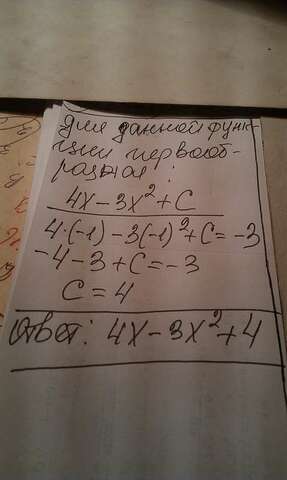 Для данной функ-
ции первооб-
разная:
4x - 3x² + C
4·(-1) - 3(-1)² + C = -3
-4 - 3 + C = -3
C = 4
Ответ: 4x - 3x² + 4